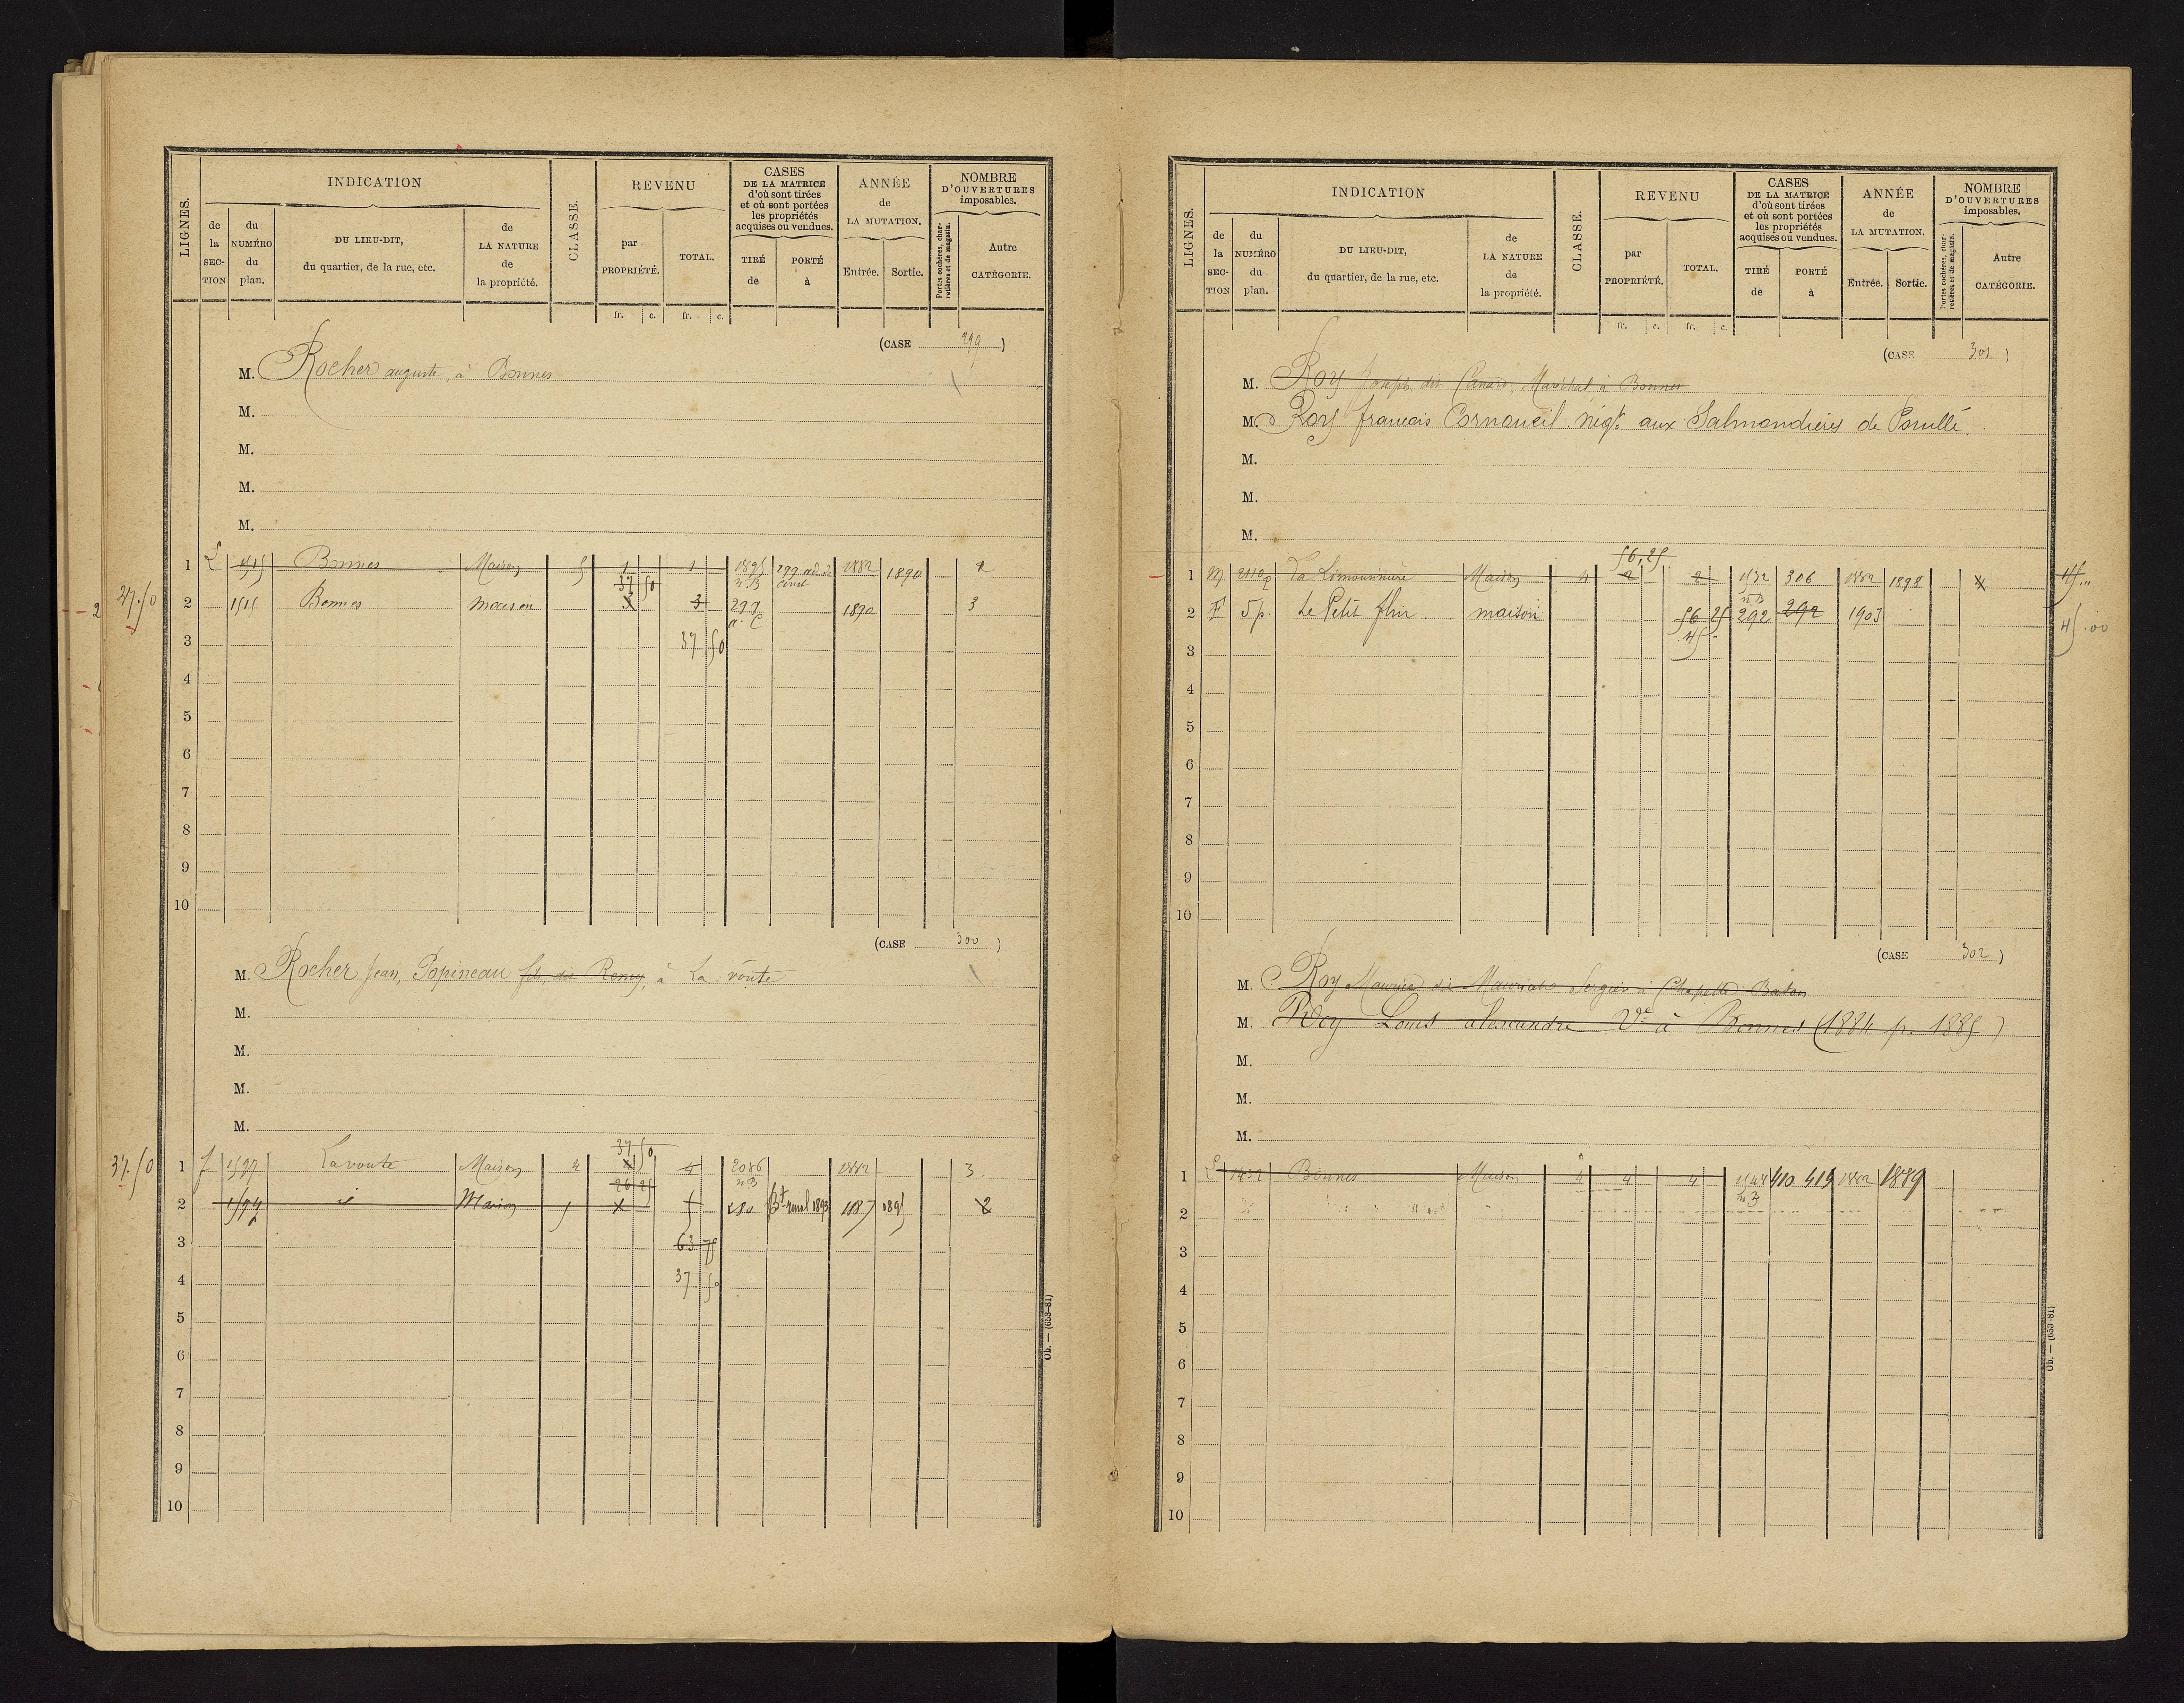 LIGNES.
INDICATION
de la SECTION
du NUMÉRO du plan.
DU LIEU-DIT, du quartier, de la rue, etc.
de LA NATURE de la propriété.
CLASSE.
REVENU
par PROPRIÉTÉ.
TOTAL.
CASES DE LA MATRICE d'où sont tirées et où sont portées les propriétés acquises ou vendues.
TIRÉ de
PORTÉ à
ANNÉE de LA MUTATION.
Entrée.
Sortie.
NOMBRE D'OUVERTURES imposables.
Portes cochères, charretières et de magasin.
Autre CATÉGORIE.
fr. c. fr. c.
(CASE 299)
M. Rocher auguste, à Bonnes
M.
M.
M.
M.
1 L 1515 Bonnes Maison 5 1 1 1895 n.B 299 ad. de const 1882 1890 2
37 50
27.50 2 1515 Bonnes maison 3 3 299 a. C 1890 3
3 37 50
4
5
6
7
8
9
10
(CASE 300)
M. Rocher Jean, Popineau fils, dit Remy, à La voûte
M.
M.
M.
M.
37 50
37.50 1 1597 La voute Maison 4 4 2086 n.B 1882 3.
26 25
2 id Maison 5 5 280 1887 1895 2
3 63 75
4 37 50
5
6
7
8
9
10
Ob. — (653-81)
LIGNES.
INDICATION
de la SECTION
du NUMÉRO du plan.
DU LIEU-DIT, du quartier, de la rue, etc.
de LA NATURE de la propriété.
CLASSE.
REVENU
par PROPRIÉTÉ.
TOTAL.
CASES DE LA MATRICE d'où sont tirées et où sont portées les propriétés acquises ou vendues.
TIRÉ de
PORTÉ à
ANNÉE de LA MUTATION.
Entrée.
Sortie.
NOMBRE D'OUVERTURES imposables.
Portes cochères, charretières et de magasin.
Autre CATÉGORIE.
fr. c. fr. c.
(CASE 301)
M. Roy Joseph, dit Canard, Maréchal à Bonnes
M. Roy francais Cornoueil. négt. aux Salmondières de Pouillé.
M.
M.
M.
56,25
1 M 2110p La Limouinière Maison 4 2 2 1532 n.B 306 1882 1898 45..
2 F 5 p. Le Petit flin. maison 56 25 292 292 1903 45.00
45 ..
3
4
5
6
7
8
9
10
(CASE 302)
M. Roy Maurice dit Mauricet Sergier à Chapelle Bâton
M. Roy Louis alexandre Ve à Bonnes (1884 p. 1885)
M.
M.
M.
1 L 1432 Bonnes Maison 4 4 4 410 419 1882 1889
2
3
4
5
6
7
8
9
10
Ob. — (653-81)